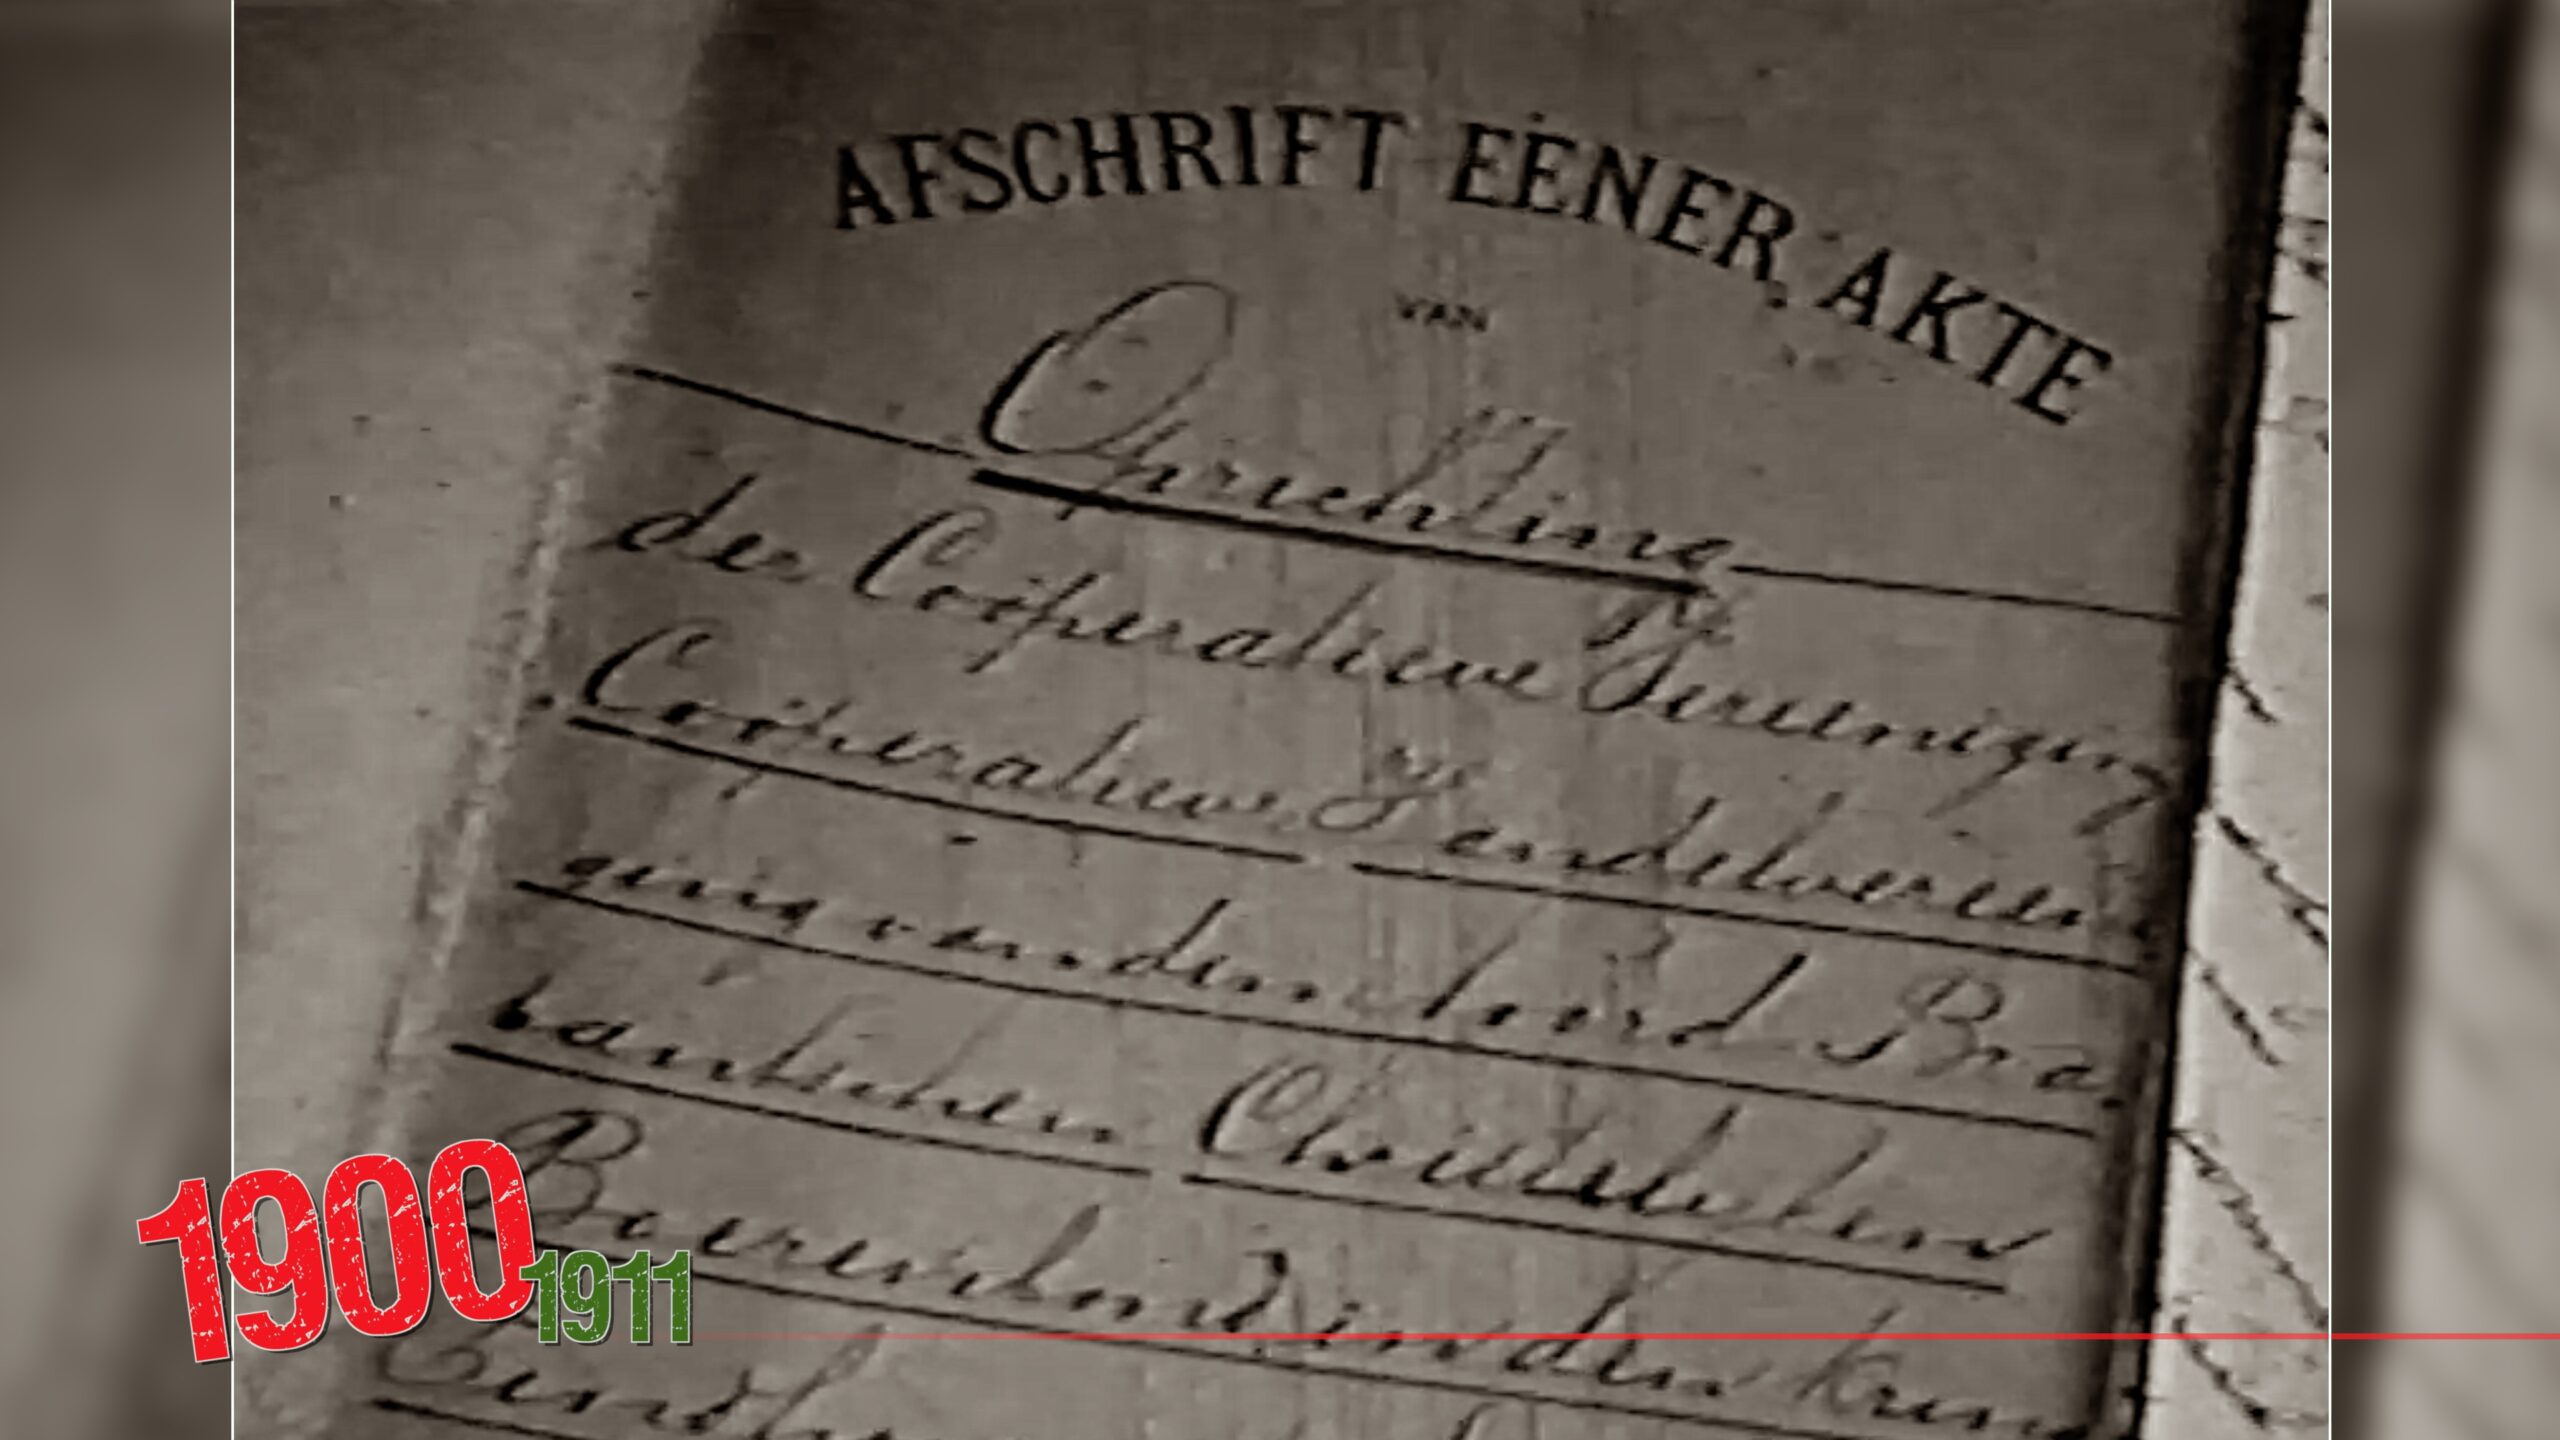 AFSCHRIFT EENER AKTE
VAN
Oprichting
der Coöperatieve Vereeniging
Coöperatieve Handelsvereeni
ging van den Noord Bra
bantschen Christelijken
Boerenbond in den kring
Eindh
1900
1911